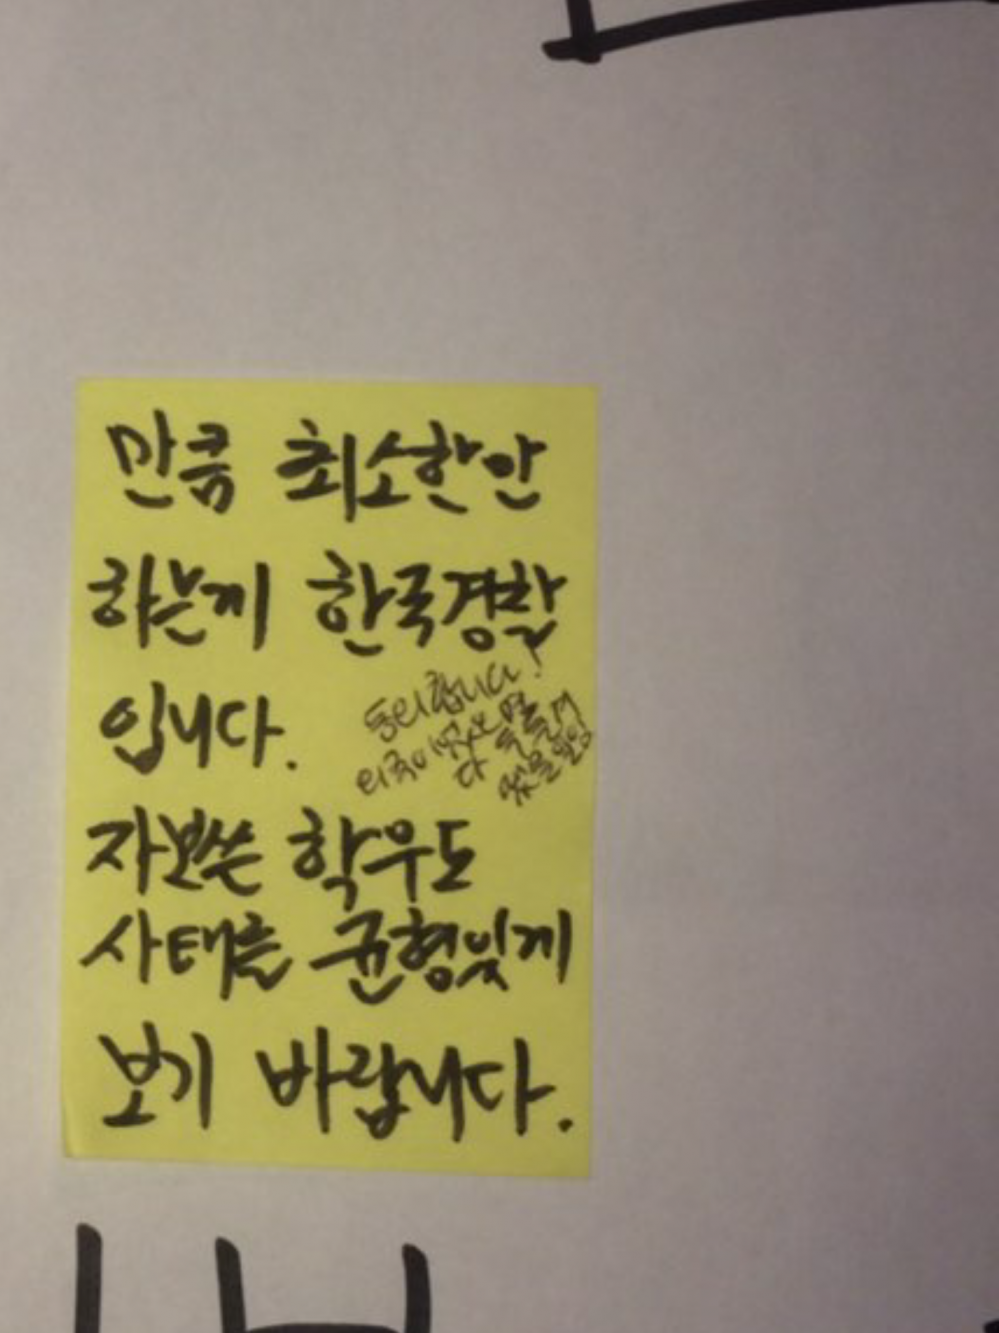 만큼 최소한안
하는게 한국경찰
입니다.
동의합니다!
자보쓴 학우도
사태를 균형잊게
보기 바랍니다.